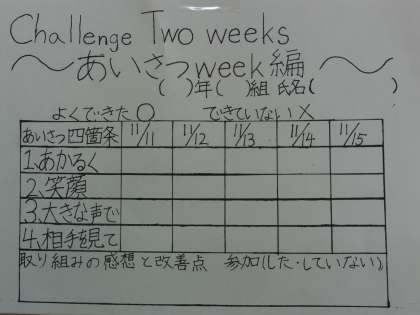 Challenge Two weeks
～あいさつweek編～
(　)年(　)組 氏名(　　　)
よくできた○　できていない×
あいさつ四箇条 11/11 11/12 11/13 11/14 11/15
1.あかるく
2.笑顔
3.大きな声で
4.相手を見て
取り組みの感想と改善点　参加(した・していない)